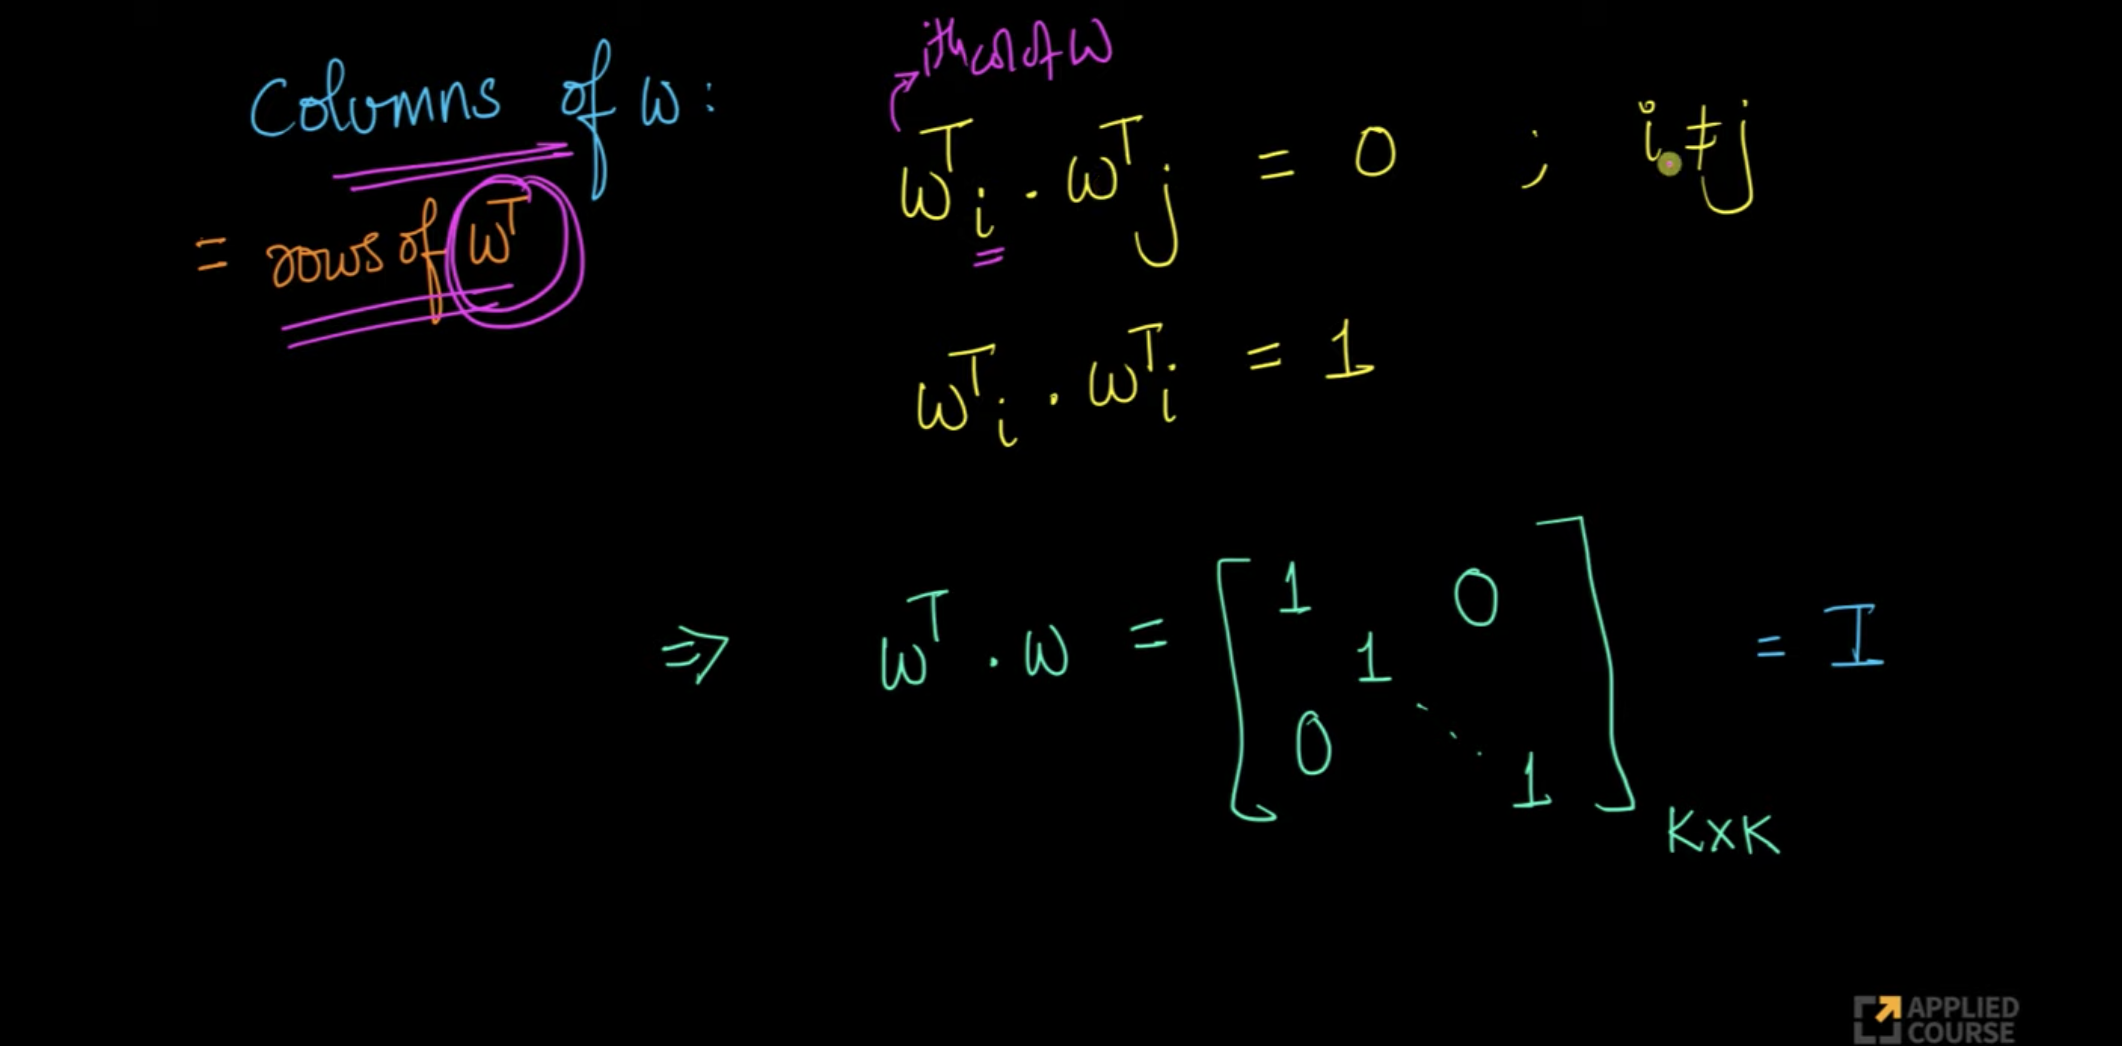 Columns of W:
= rows of Wᵀ
ith col of W
Wᵀi . Wᵀj = 0 ; i ≠ j
Wᵀi . Wᵀi = 1
⇒ Wᵀ . W = [ 1 0
1
0 ⋱ 1 ] K×K = I
APPLIED
COURSE